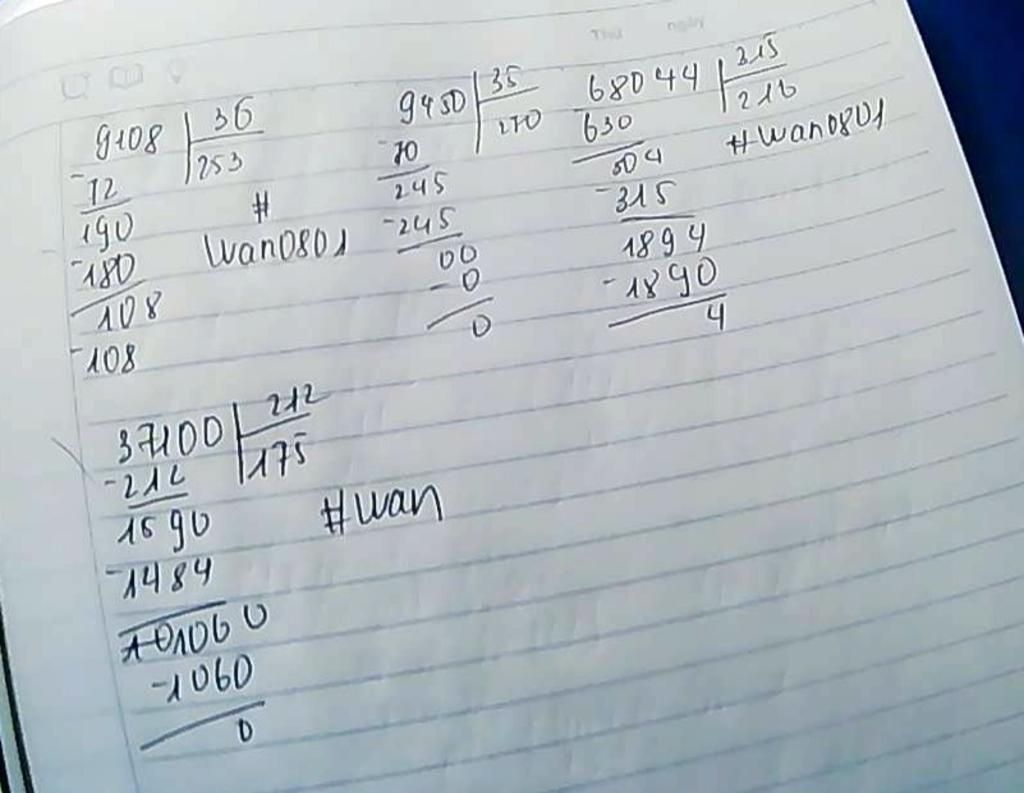 Thứ ngày
9108 36
-72 253
190
-180
108
-108
#
wan0801
9450 35
-70 270
245
-245
00
-0
0
68044 315
630 216
504
-315
1894
-1890
4
#wan0801
37100 212
-212 175
1590
-1484
101060
-1060
0
#wan